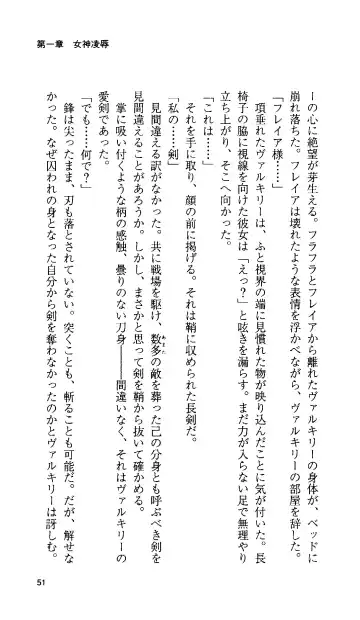 第一章　女神凌辱
ーの心に絶望が芽生える。フラフラとフレイアから離れたヴァルキリーの身体が、ベッドに
崩れ落ちた。フレイアは壊れたような表情を浮かべながら、ヴァルキリーの部屋を辞した。
「フレイア様……」
項垂れたヴァルキリーは、ふと視界の端に見慣れた物が映り込んだことに気が付いた。長
椅子の脇に視線を向けた彼女は「えっ？」と呟きを漏らす。まだ力が入らない足で無理やり
立ち上がり、そこへ向かった。
「これは……」
それを手に取り、顔の前に掲げる。それは鞘に収められた長剣だ。
「私の……剣」
見間違える訳がなかった。共に戦場を駆け、数多の敵を葬った己の分身とも呼ぶべき剣を
見間違えることがあろうか。しかし、まさかと思って剣を鞘から抜いて確かめる。
掌に吸い付くような柄の感触、曇りのない刀身――間違いなく、それはヴァルキリーの
愛剣であった。
「でも……何で？」
鋒は尖ったまま、刃も落とされていない。突くことも、斬ることも可能だ。だが、解せな
かった。なぜ囚われの身となった自分から剣を奪わなかったのかとヴァルキリーは訝しむ。
51